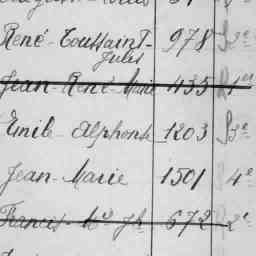 René-Toussaint- 978 2e
Jules
Jean-René-Marie 435 1er
Emile-Alphonse 1203 3e
Jean-Marie 1501 4e
Francis-Mie-Jh 672 2e